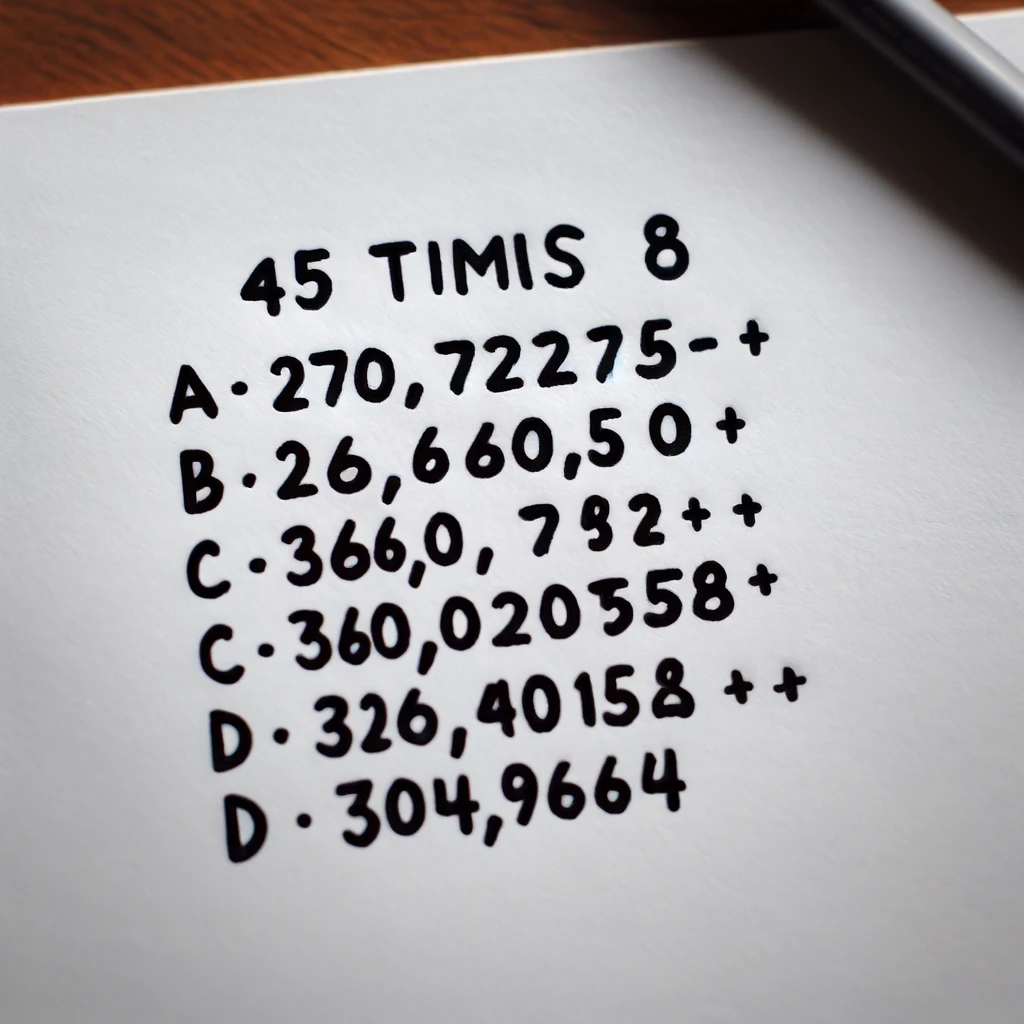 45 TIMIS 8
A·270,72275-+
B·26,660,50+
C·366,0,792++
C·360,020558+
D·326,40158++
D·304,9664